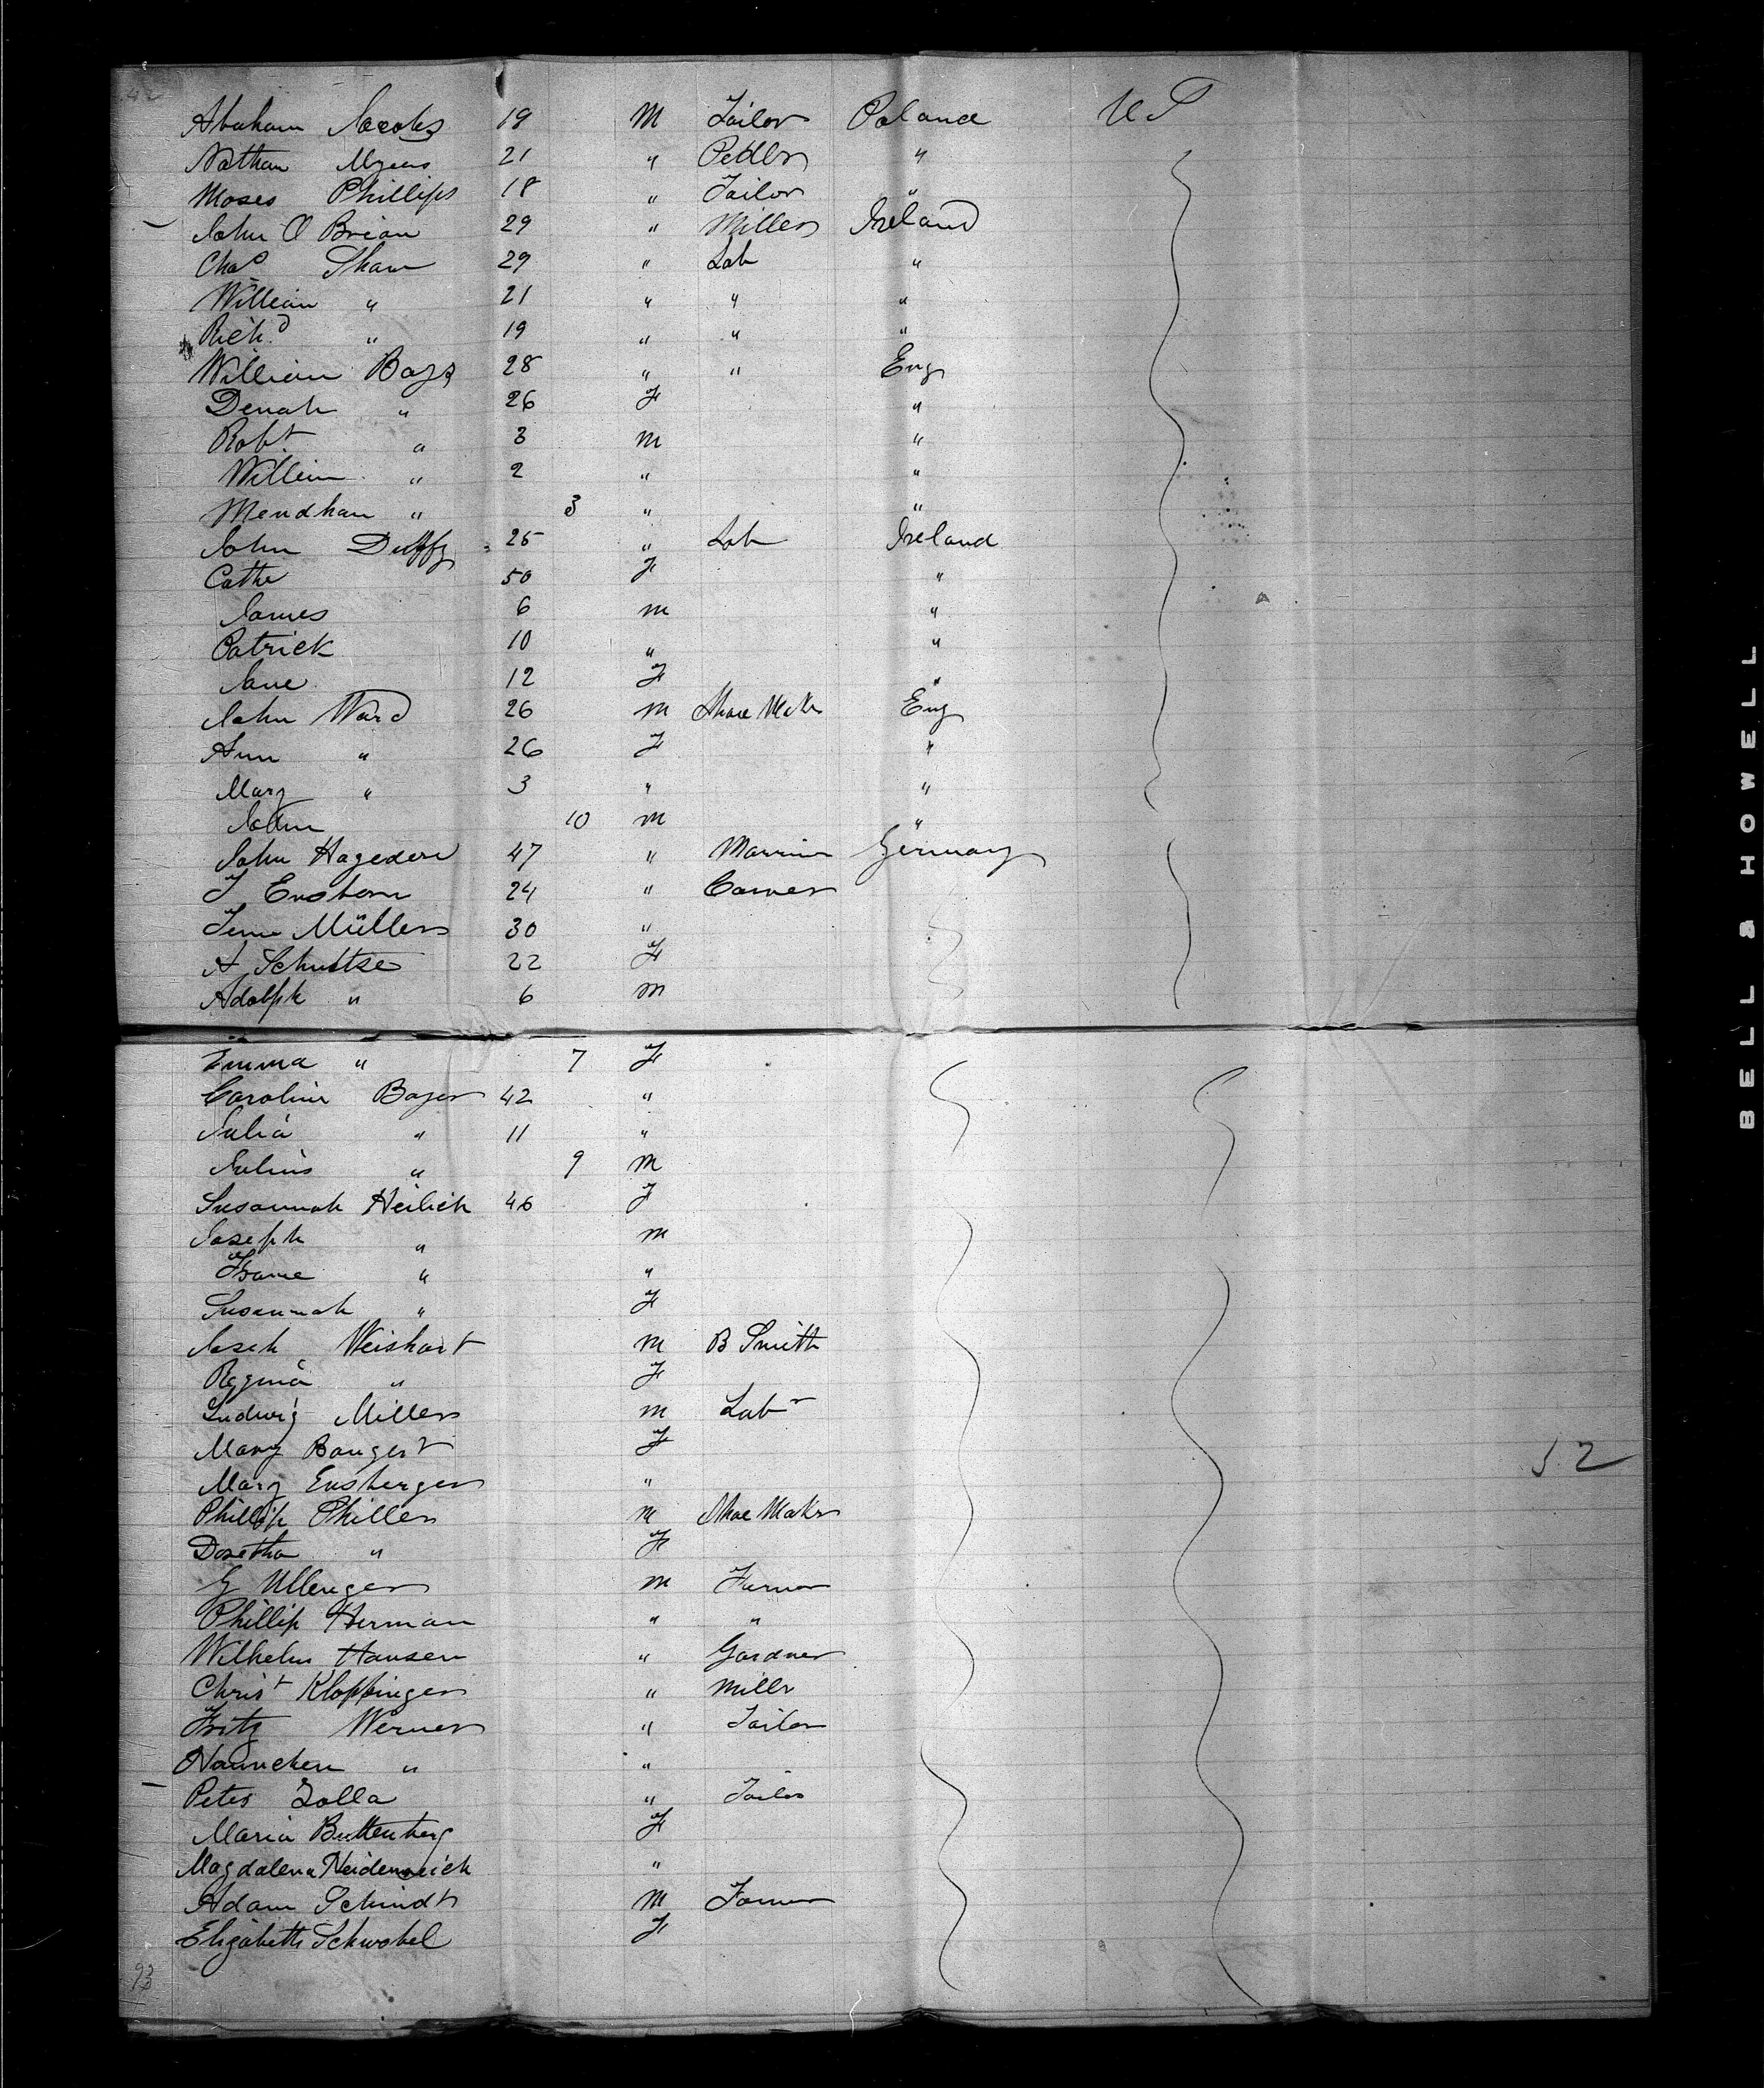 42
Abraham Jacobs 19 M Tailor Poland U S
Nathan Myers 21 " Pedler "
Moses Phillips 18 " Tailor "
John O Brian 29 " Miller Ireland
Chas Shaw 29 " Lab "
William " 21 " " "
Richd " 19 " " "
William Bays 28 " " Eng
Denah " 26 F "
Robt " 3 M "
William " 2 " "
Mendham " 3 " "
John Duffy 25 " Lab Ireland
Cathe 50 F "
James 6 M "
Patrick 10 " "
Jane 12 F "
John Ward 26 M Shoe Makr Eng
Ann " 26 F "
Mary " 3 " "
John 10 M "
John Hagedorn 47 " Germany
J 24 " Carver
Müller 30 "
A Schultze 22 F
Adolph " 6 M
Emma " 7 F
Caroline Bayer 42 "
Julia " 11 "
Julius " 9 M
Susannah Heilich 46 F
Joseph " M
" "
Susannah " F
Weishart M B Smith
Regina " F
Ludwig Miller M Labr
Mary Bangert F
Mary Ensberger "
Phillip Philler M Shoe Makr
Doretha " F
G Ullenger M Farmer
Phillip Herman " "
Wilhelm Hansen " Gardner
Christ Kloppinger " Millr
Fritz Werner " Tailor
Hannchen " "
Peter Zolla " Tailor
Maria Buttenberg F
Magdalena Heidenreich "
Adam Schmidt M Farmer
Elizabeth Schwobel F
52
93
BELL & HOWELL